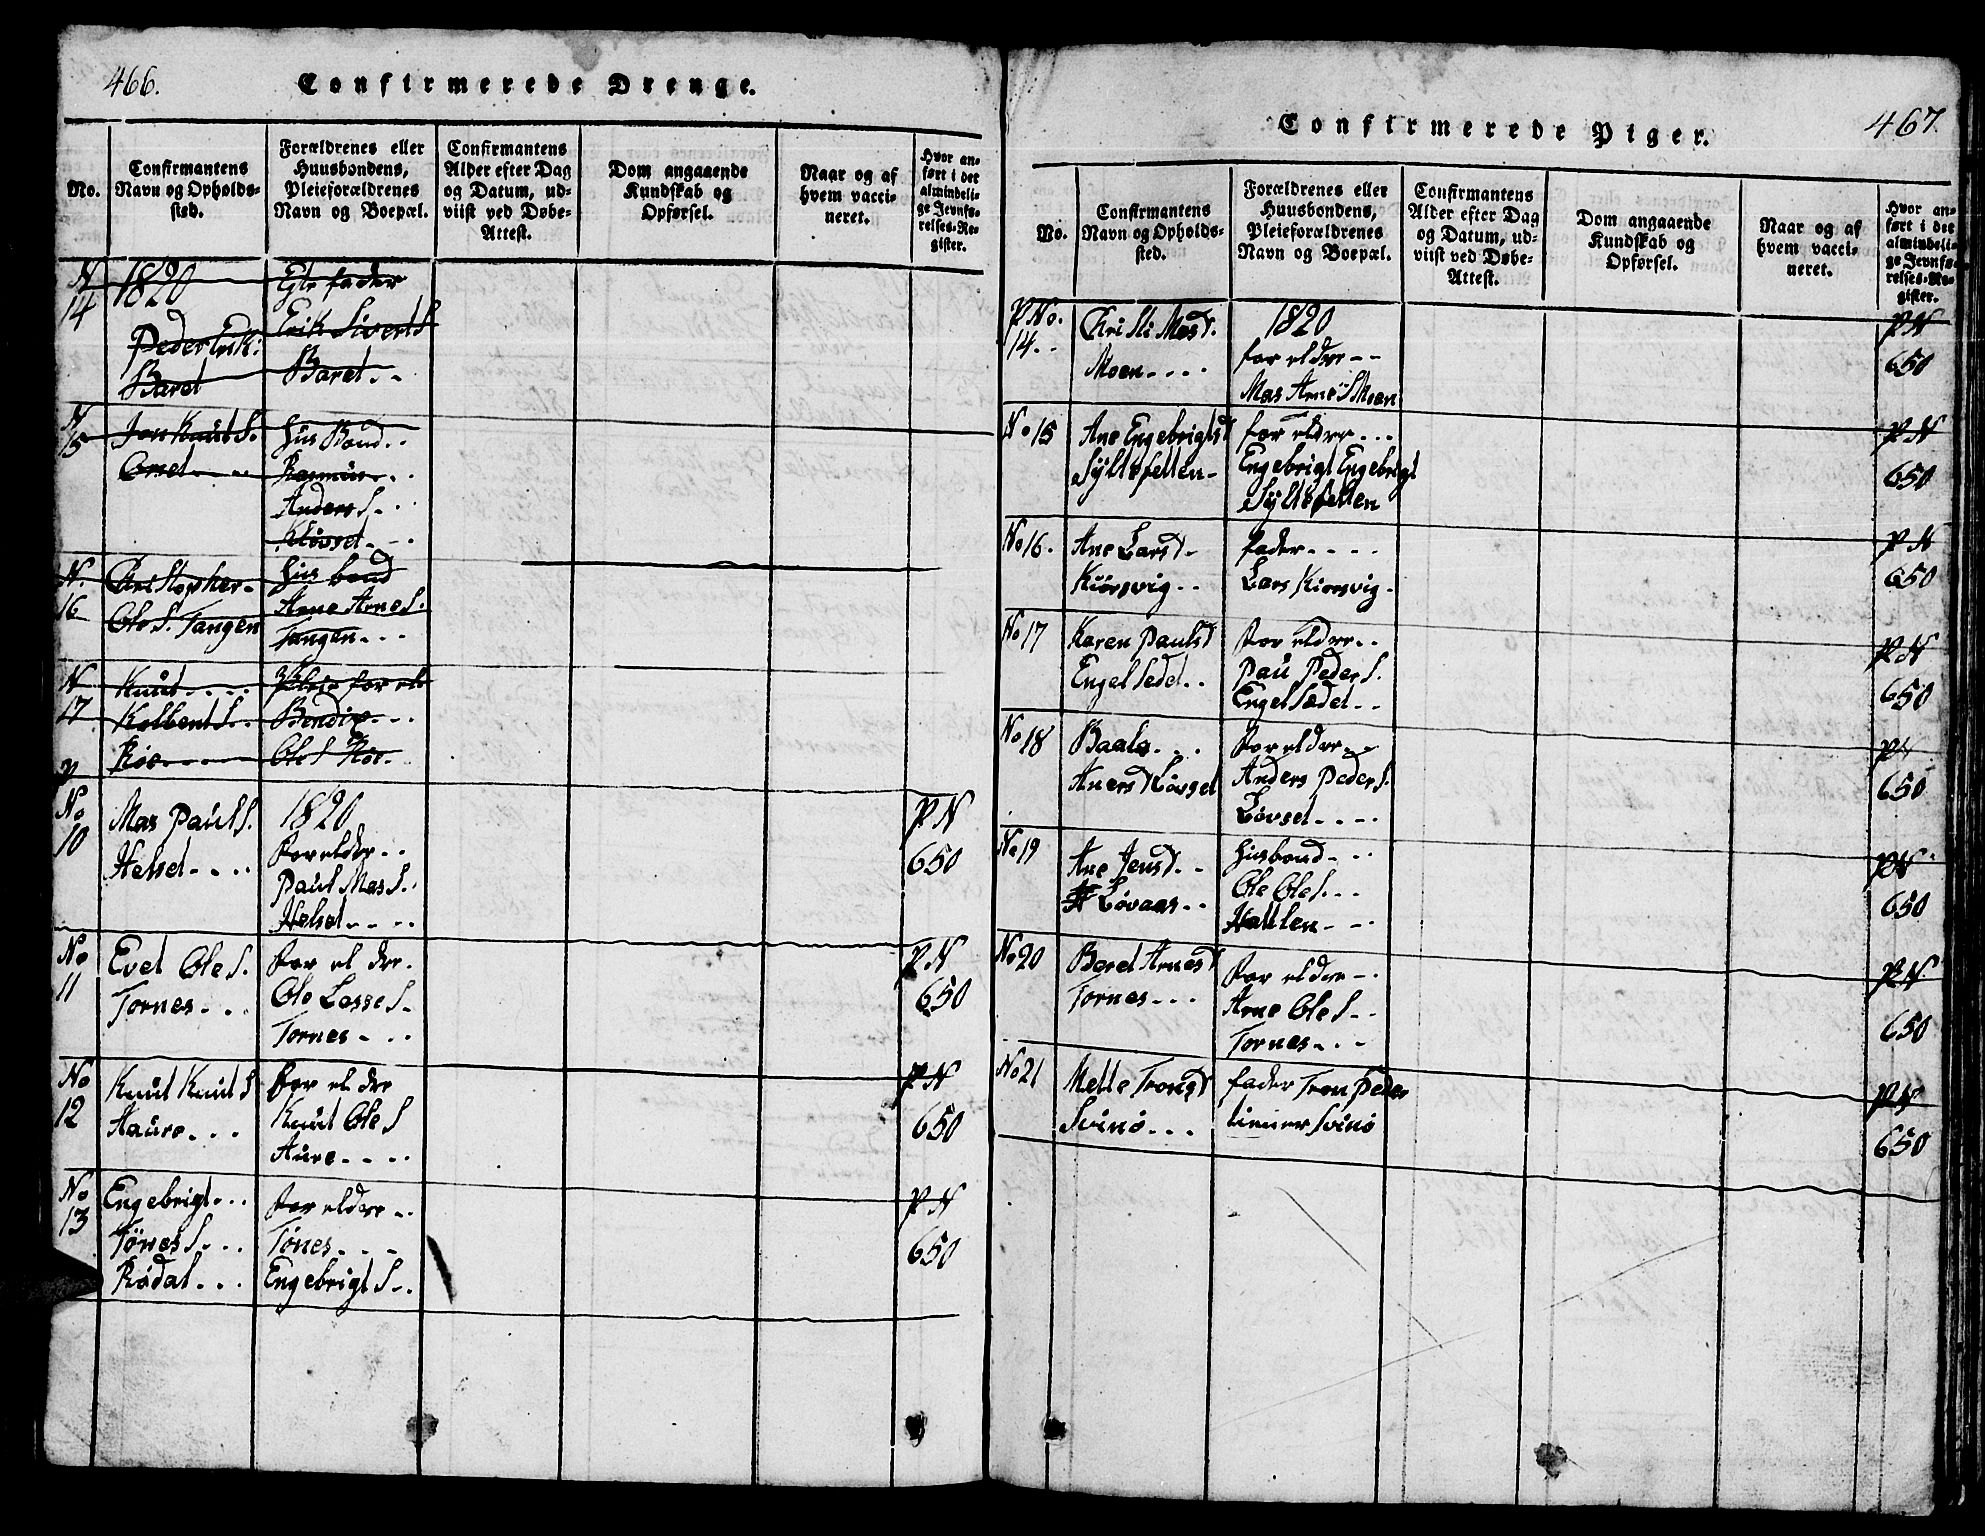 466.
Confirmerede Drenge.
No.
Confirmantens
Navn og Opholds-
sted.
Forældrenes eller
Huusbondens,
Pleieforældrenes
Navn og Boepæl.
Confirmantens
Alder efter Dag
og Datum, ud-
viist ved Døbe-
Attest.
Dom angaaende
Kundskab og
Opførsel.
Naar og af
hvem vacci-
neret.
Hvor an-
ført i det
almindeli-
ge Jevnfø-
relses-Re-
gister.
N 14
1820
Peder Erik:
Baret
fader
Erik Siverts
Baret - -
N 15
Jon Knut S.
Orset - - -
Hus Bond - -
Rasmus - -
Anders S. - -
Kløvset - - -
N. 16
Christopher -
Ole S. Tangen
Hus bond
Arne Arne S.
Tangen - - -
N 17
Knut - - - -
Kolbent S. -
Röe - - - -
Pleie for ele
Bendix - - -
Ole S Röe -
No 10
Mas Paul S.
Helset - - - -
1820
For eldre - -
Paul Mas S. -
Helset - - - -
P N
650
No 11
Evet Ole S.
Tornes - - -
For el dre.
Ole Lasse S.
Tornes - - -
P N
650
No 12
Knut Knut S
Aaure - - -
For el dre
Knut Ole S
Aure - - - -
P N
650
No 13
Engebrigt - - -
Tönes S. - - -
Rødal - - -
For eldre - -
Tønes - - -
Engebrigt S - -
P N
650
Confirmerede Piger.
467.
No.
Confirmantens
Navn og Opholds-
sted.
Forældrenes eller
Huusbondens,
Pleieforældrenes
Navn og Boepæl.
Confirmantens
Alder efter Dag
og Datum, ud-
viist ved Døbe-
Attest.
Dom angaaende
Kundskab og
Opførsel.
Naar og af
hvem vacci-
neret.
Hvor an-
ført i det
almindeli-
ge Jevnfø-
relses-Re-
gister.
P No. 14 - -
Chri Sti Masd.
Moen - - - -
1820
for eldre - -
Mas Arne S Moen
P N
650
No 15
Ane Engebrigtsd
Syltefetten -
for eldre - - -
Engebrigt Engebrigt
Syltefetten
P N
650
No 16.
Ane Larsd -
Kiörsvig - -
fader - - - -
Lars Kiorsvig -
P N
650
No 17
Karen Paulsd
Engel sedet - -
For eldre - -
Pau Peder S.
Engel sædet - -
P N
650
No 18
Baala - - -
Anersd Lövset
For eldre - -
Anders Peder S.
Lövset - - - -
P N
650
No 19
Ane Jensd - -
Lövaas - -
Husbond - - -
Ole Ole S. - -
Hatlen - - -
P N
650
No 20
Beret Arnesd
Tornes - - -
For eldre - -
Arne Ole S - -
Tornes - - -
P N
650
No 21
Mette Tronsd
Svinö - - -
fader Tron Peder
Svinö
P N
650